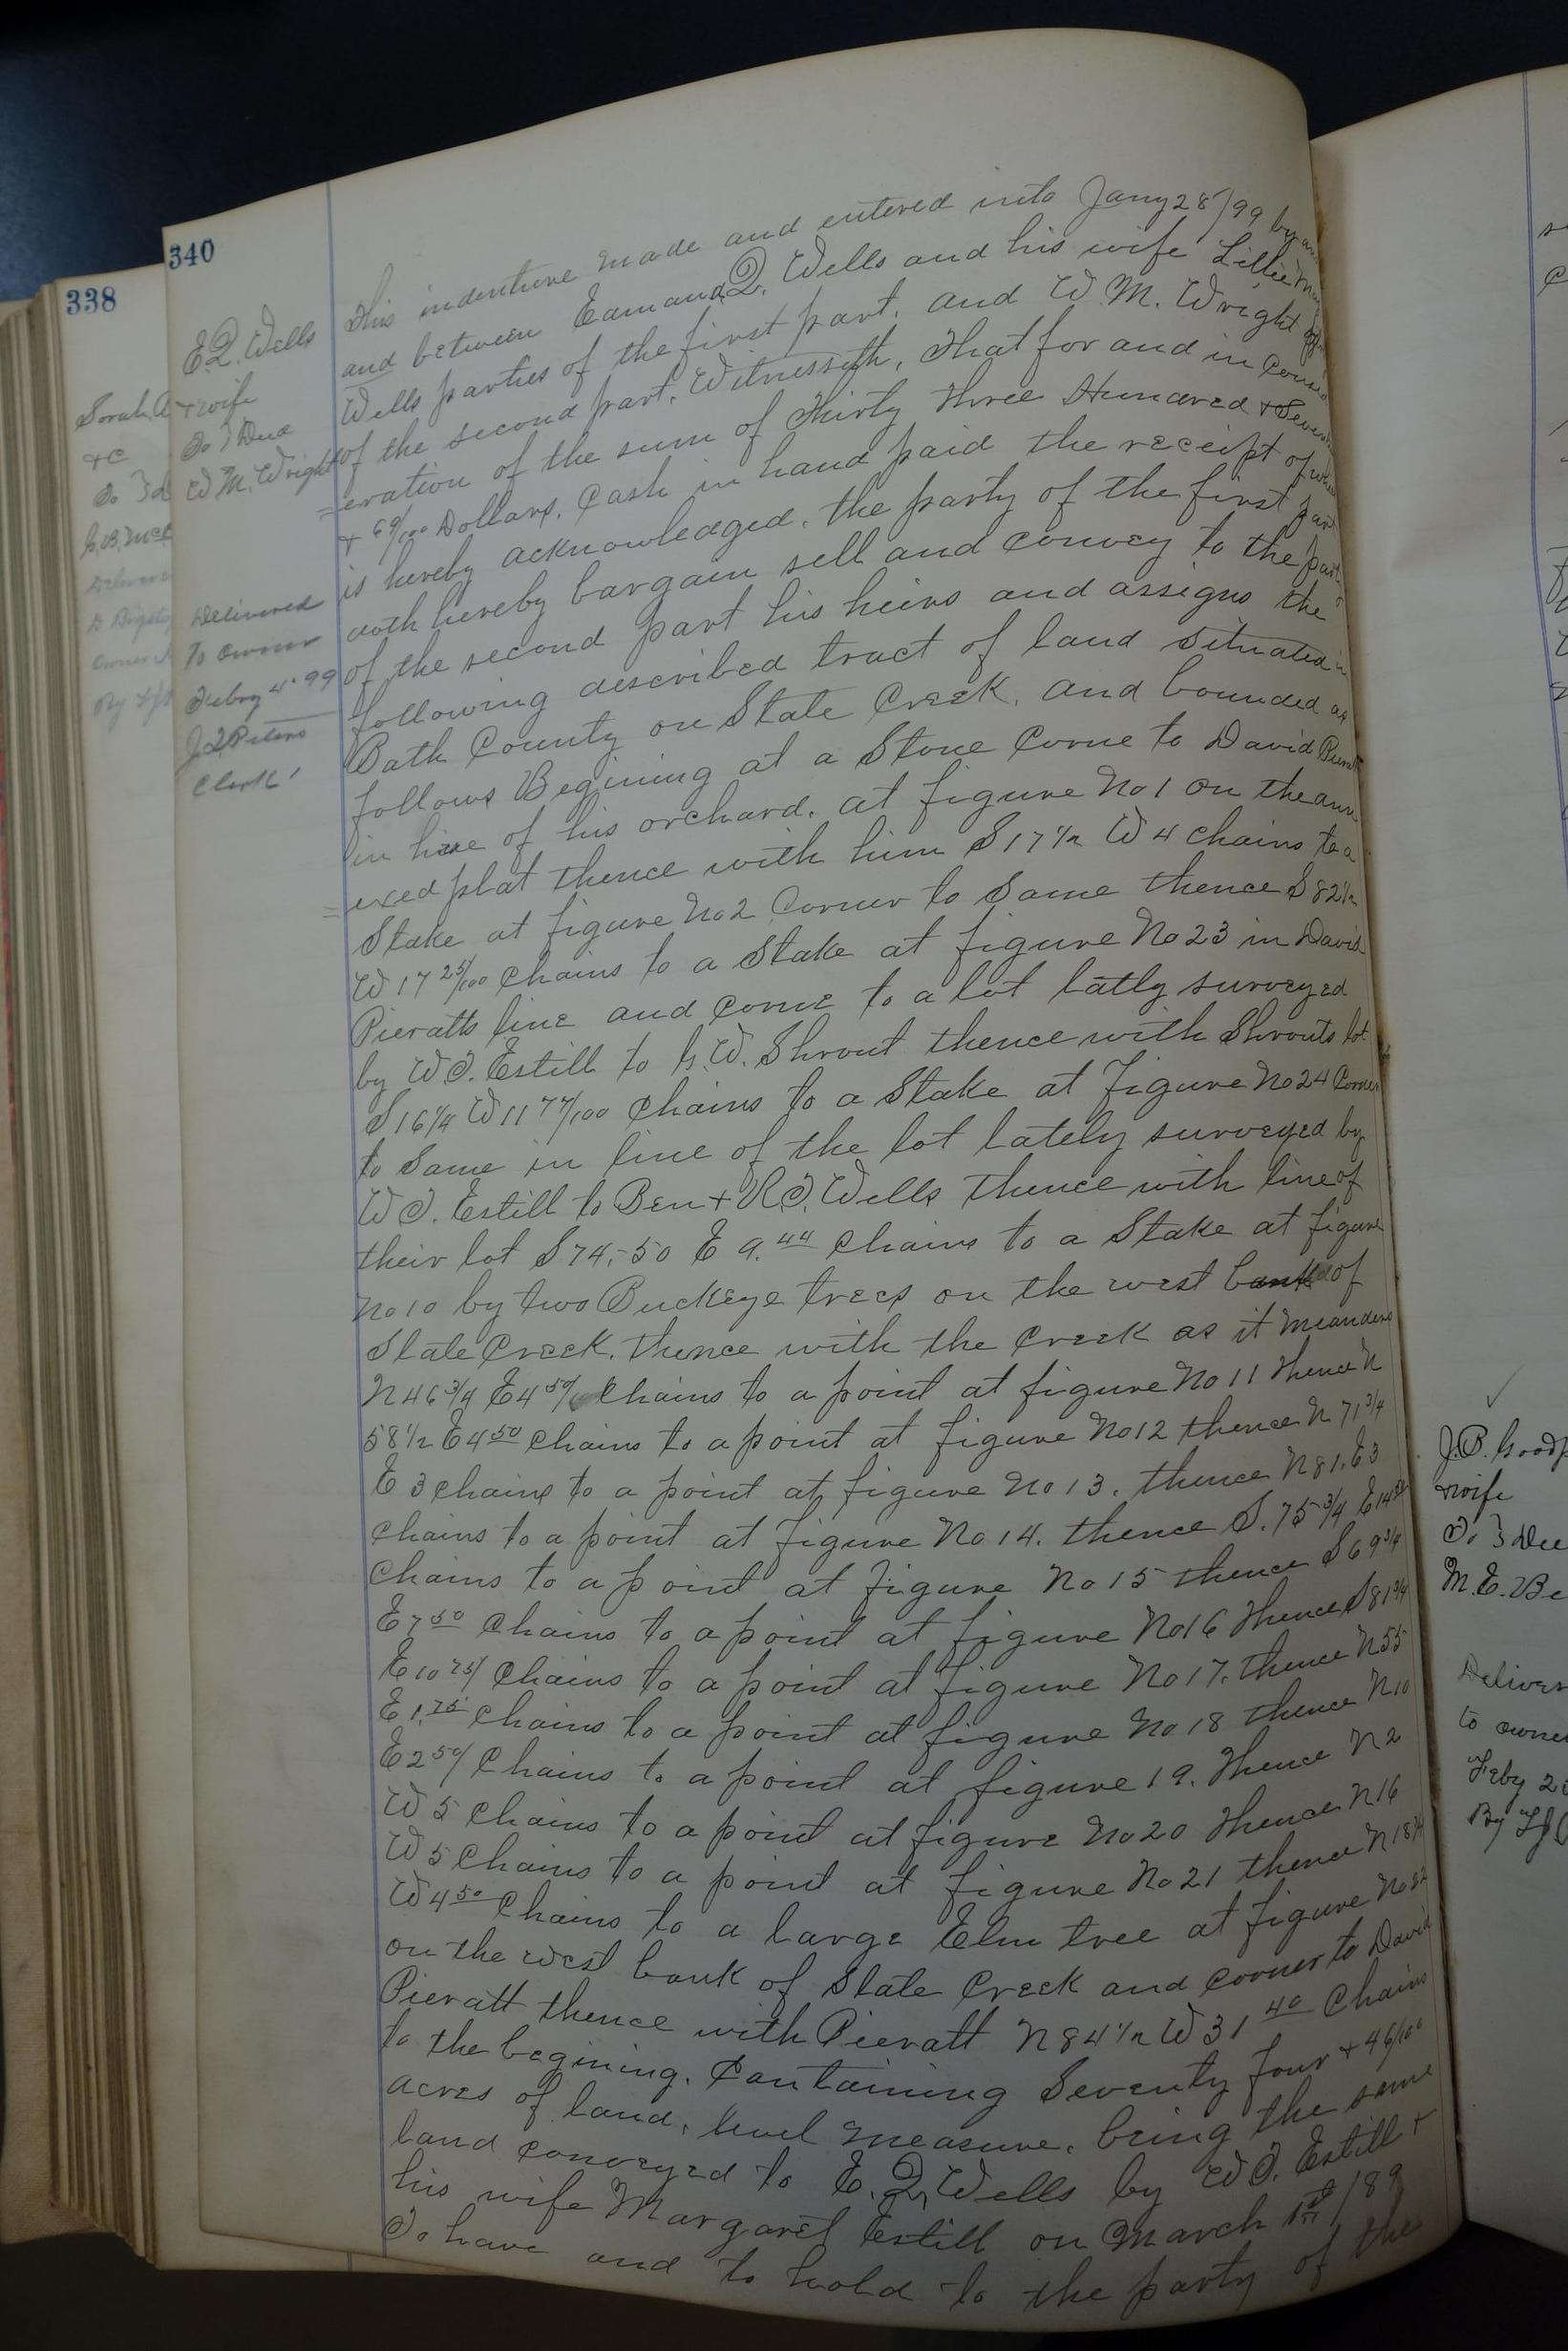 340
338
E.Q. Wells
+ wife
To } Deed
W. M. Wright
Delivered
To owner
Febry 4" 99
J Q Peters
Clerk
Sarah A
+c
To } d
Deliver
owner
By
This indenture made and entered into Jany 28/99 by an
and between Eamand Q. Wells and his wife Lillie May
Wells parties of the first part, and W. M. Wright
of the second part, Witnesseth, That for and in Consid
=eration of the sum of Thirty Three Hundred + Seven
+ 69/100 Dollars, Cash in hand paid the receipt of whi
is hereby acknowledged, the party of the first part
doth hereby bargain sell and convey to the part
of the second part his heirs and assigns the
following described tract of land situated in
Bath County on State Creek, and bounded as
follows Begining at a Stone Corne to David Pieratt
in line of his orchard, at figure No 1 on the ann
=exed plat thence with him S 17 1/2 W 4 chains to a
Stake at figure No 2 Corner to Same thence S 82 1/2
W 17 25/100 Chains to a Stake at figure No 23 in David
Pieratts line and corne to a lot latly surveyed
by W T. Estill to G. W. Shrout thence with Shrouts lot
S 16 1/4 W 11 77/100 Chains to a Stake at figure No 24 Corner
to Same in line of the lot lately surveyed by
W T. Estill to Ben + R T. Wells thence with line of
their lot S 74,-50 E 9.44 Chains to a Stake at figure
No 10 by two Buckeye trees on the west bank of
State Creek, thence with the creek as it meanders
N 46 3/4 E 4 50/ Chains to a point at figure No 11 thence N
58 1/2 E 4 50 chains to a point at figure No 12 thence N 71 3/4
E 3 chains to a point at figure No 13. thence N 81. E 3
chains to a point at figure No 14. thence S. 75 3/4 E 14 50
Chains to a point at figure No 15 thence S 69 3/4
E 7 50 Chains to a point at figure No 16 thence S 81 3/4
E 10 75/ Chains to a point at figure No 17. thence N 55
E 1.75 Chains to a point at figure No 18 thence N 10
E 2 50/ Chains to a point at figure 19. thence N 2
W 5 Chains to a point at figure No 20 thence N 16
W 5 Chains to a point at figure No 21 thence N 18 3/4
W 4 50 Chains to a large Elm tree at figure No 22
on the west bank of State Creek and corner to David
Pieratt thence with Pieratt N 84 1/2 W 31 40 Chains
to the begining. Containing Seventy four + 46/100
acres of land, level measure, being the same
land conveyed to E. Q. Wells by W T. Estill +
his wife Margaret Estill on March 1st/189
To have and to hold to the party of the
J. B. Goodp
+ wife
To } Dee
M. E. Be
Deliver
to owne
Feby 2
By